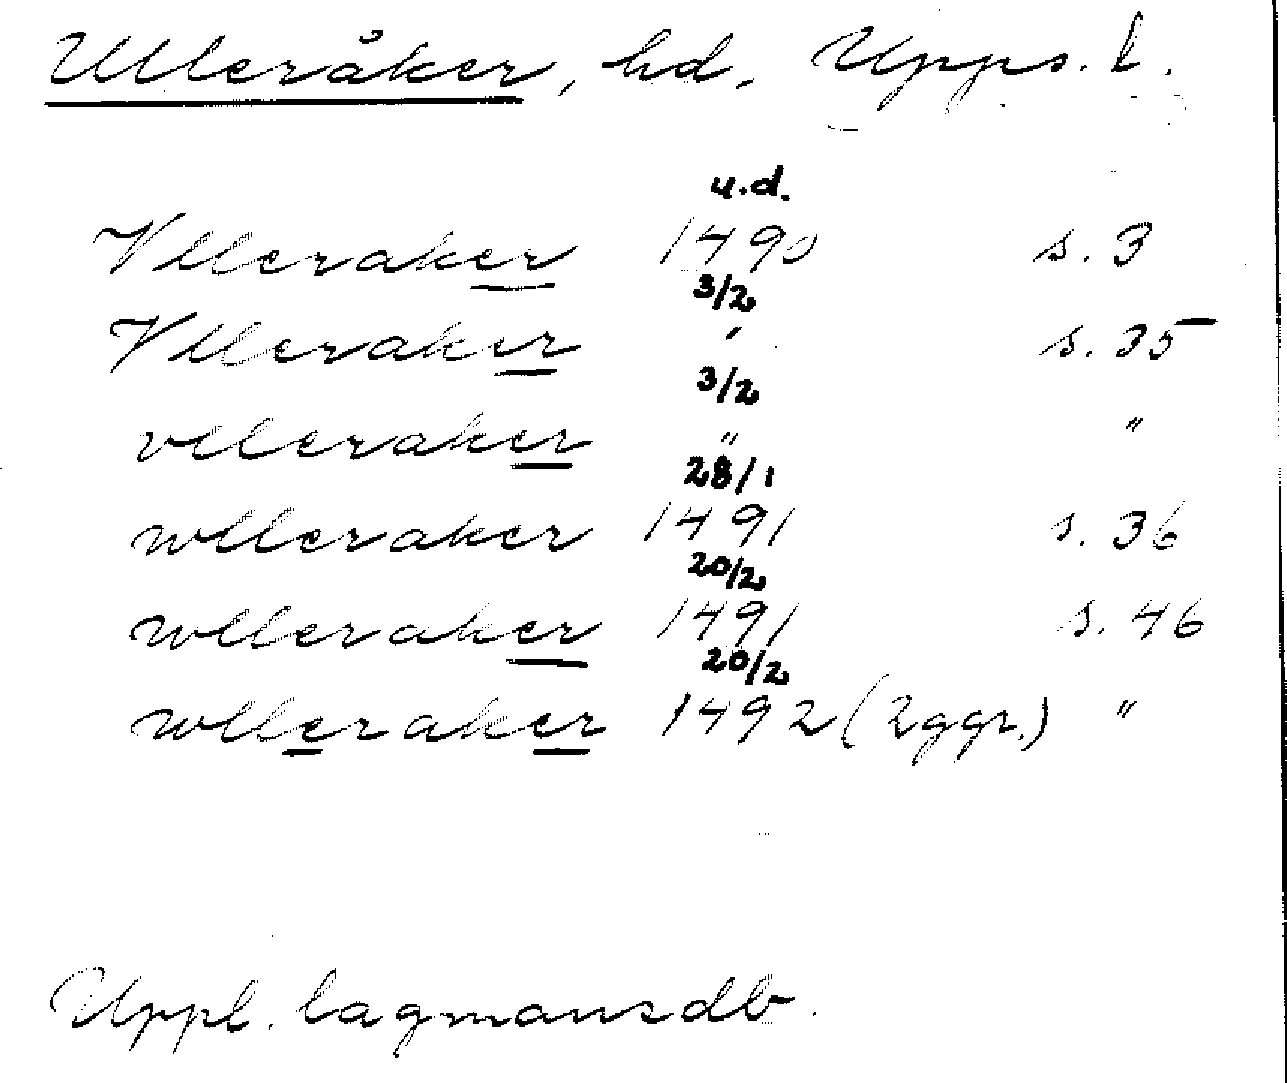 Ulleråker, hd, Upps. l.
u.d.
Vlleraker 1490 s. 3
3/2
Vlleraker " s. 35
3/2
vlleraker " "
28/1
wlleraker 1491 s. 36
20/2
wlleraker 1491 s. 46
20/2
wlleraker 1492 (2ggr.) "
Uppl. lagmansdb.